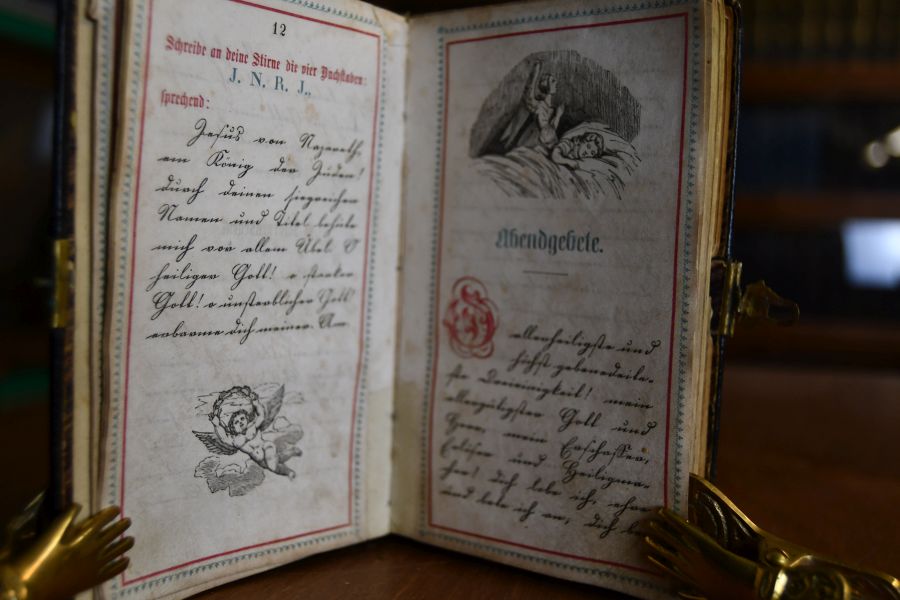 12
Schreibe an deine Stirne die vier Buchstaben:
J. N. R. J.,
sprechend:
Jesus von Nazareth,
ein König der Juden!
durch deinen siegreichen
Namen und Titel behüte
mich vor allem Übel. O
heiliger Gott! o starker
Gott! o unsterblicher Gott!
erbarme dich meiner. Am.
Abendgebete.
O allerheiligste und
höchst gebenedeite-
ste Dreieinigkeit! mein
allergütigster Gott und
Herr, mein Erschaffer,
Erlöser und Heiligma-
cher! dich lobe ich, ehre
und bete ich an; dich